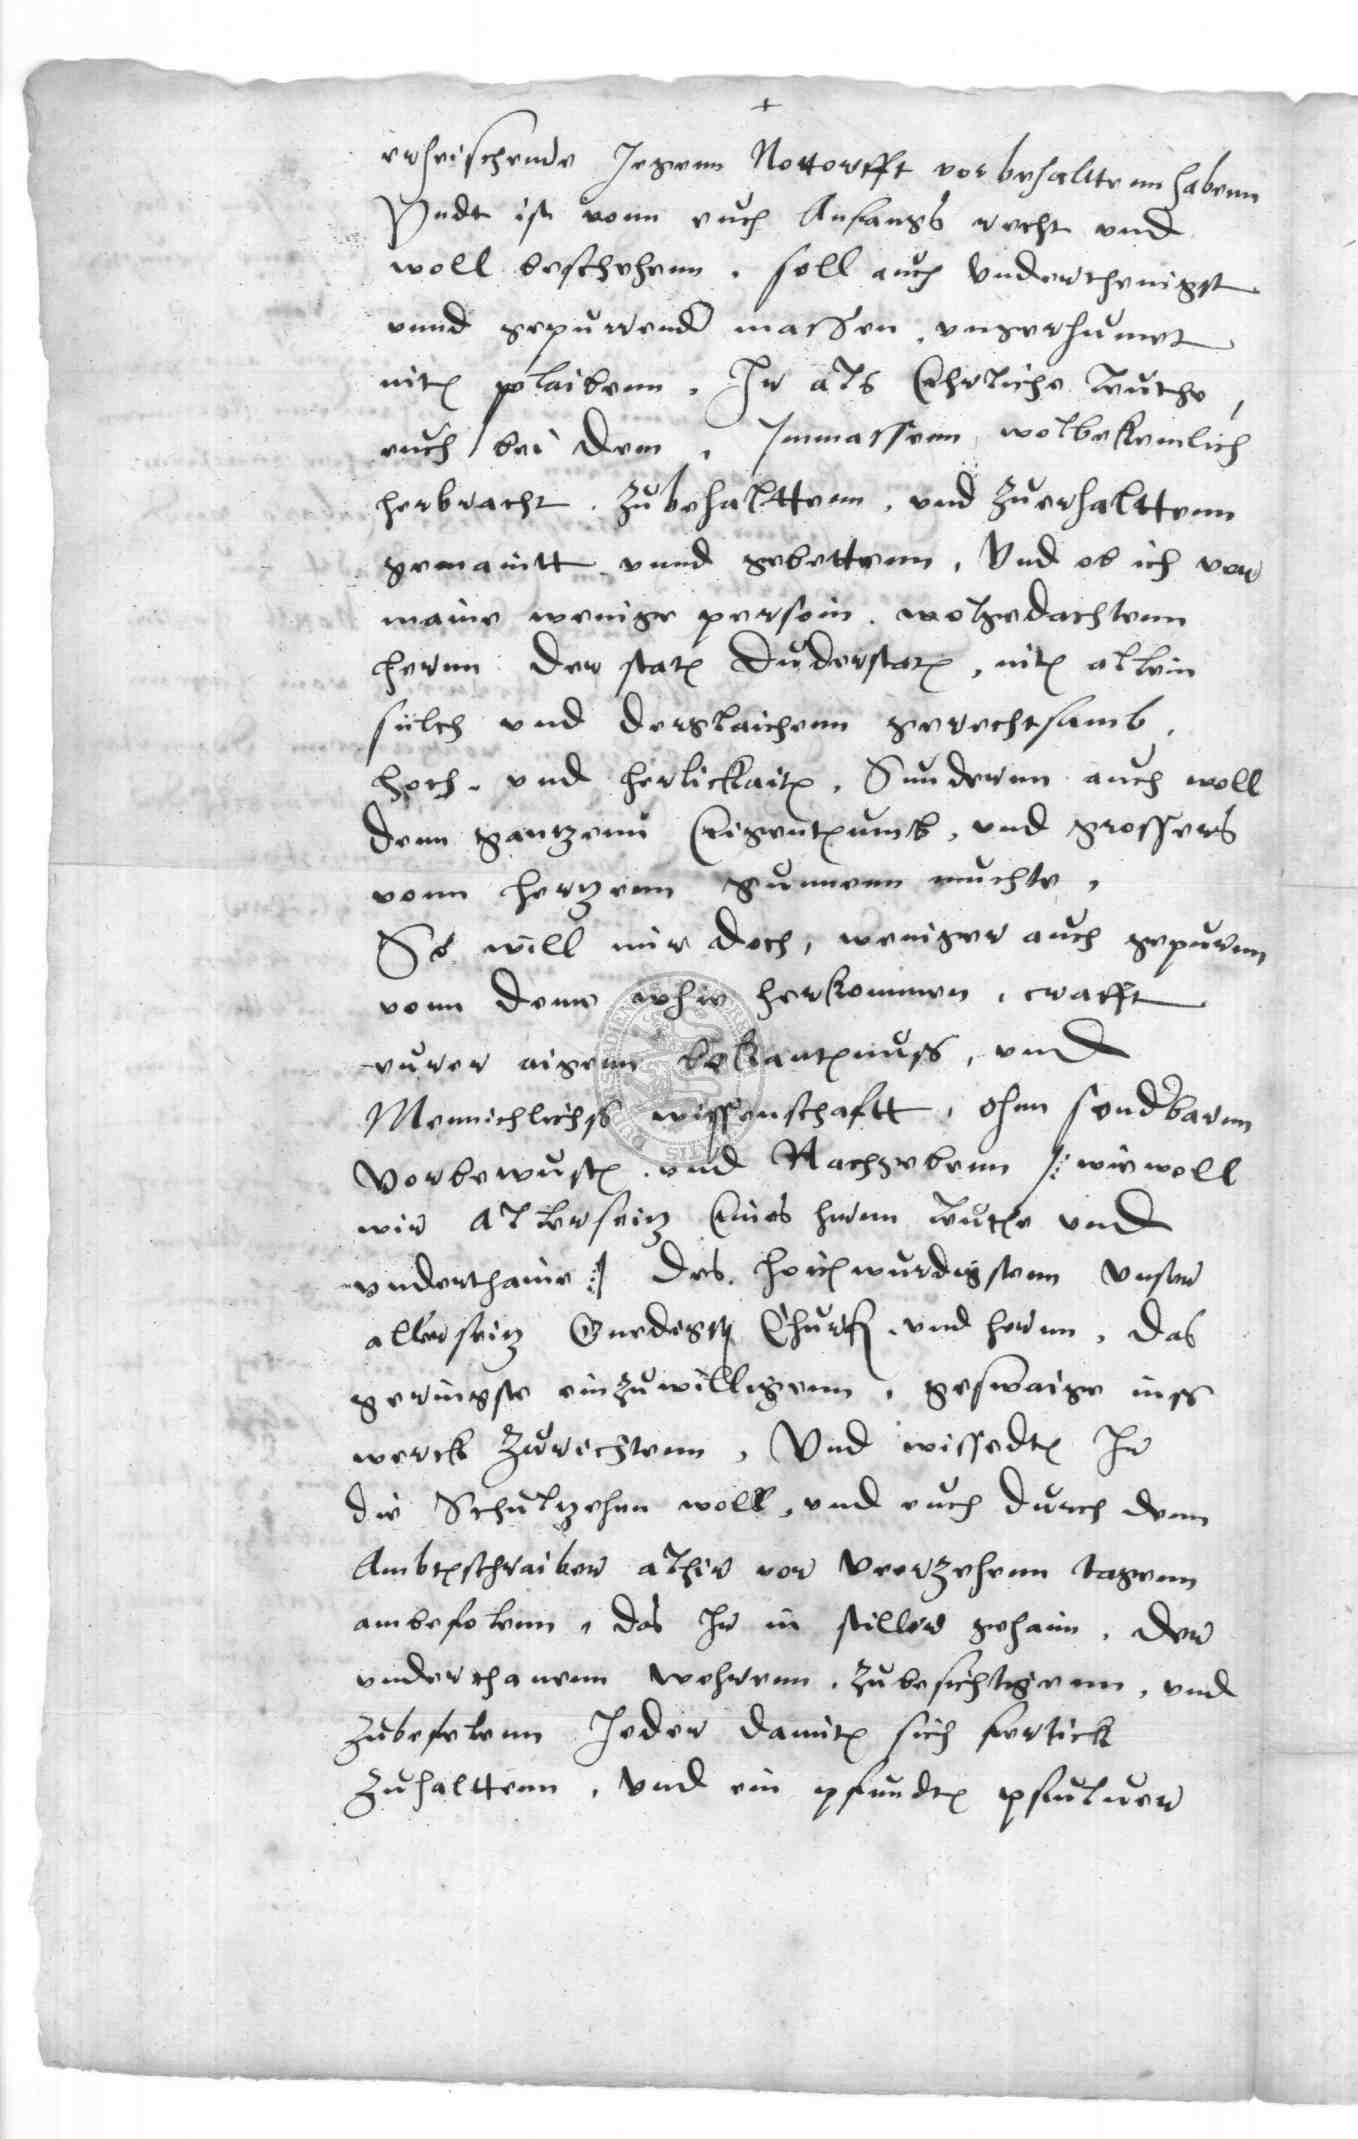 +
erheischende Jegenn Nottorfft vorbehalttenn habenn
Vndt ist vonn euch Anfangs recht vnd
woll beschehenn. soll auch vnderthenigst
vnnd gepurrend massen, vngerhumet
nitt plaibenn. Ir als Ehrliche Leuthe,
euch bei dem, Inmassenn wolbekemlich
herbracht. zubehalttenn, vnd zuerhalttenn
gemaintt vnnd gebettenn, Vnd ob ich vor
maine wenige persoin. wolgedachtenn
hernn der statt Duderstatt, nitt allein
sulch vnd dergleichenn gerechtsamb,
hoch- vnd herlickaitt, Sundernn auch woll
denn gantzenn Eigenthumb, vnd grossers
vonn hertzenn gunnenn muchte,
So will mir doch, weniger auch gepurenn
vonn deme whie herkommen, crafft
eurer aigenn bekantnuss, vnd
Mennichlichs wissenschaftt, ohnn sondbarnn
Vorbewust vnd Nachgebenn /: wiewoll
wir Allerseitz Eines hernn Leuthe vnd
vnderthaine :/ des hochwurdigstenn vnser
allerseitz Gnedigst Churf. vnd hernn, das
geringste einzuwilligenn, geswaige inss
werck zurichtenn, Vnd wissedt Ir
die Schultzehen woll, vnd euch durch denn
Ambtschraiber alhir vor veerzehenn tagenn
ambefolenn, das Ir in stiller gehaim, der
vnderthanenn wehrenn, zubesichtigenn, vnd
zubefelenn Jeder damitt sich fertick
zuhalttenn, Vnd ein pfundt pfuluer